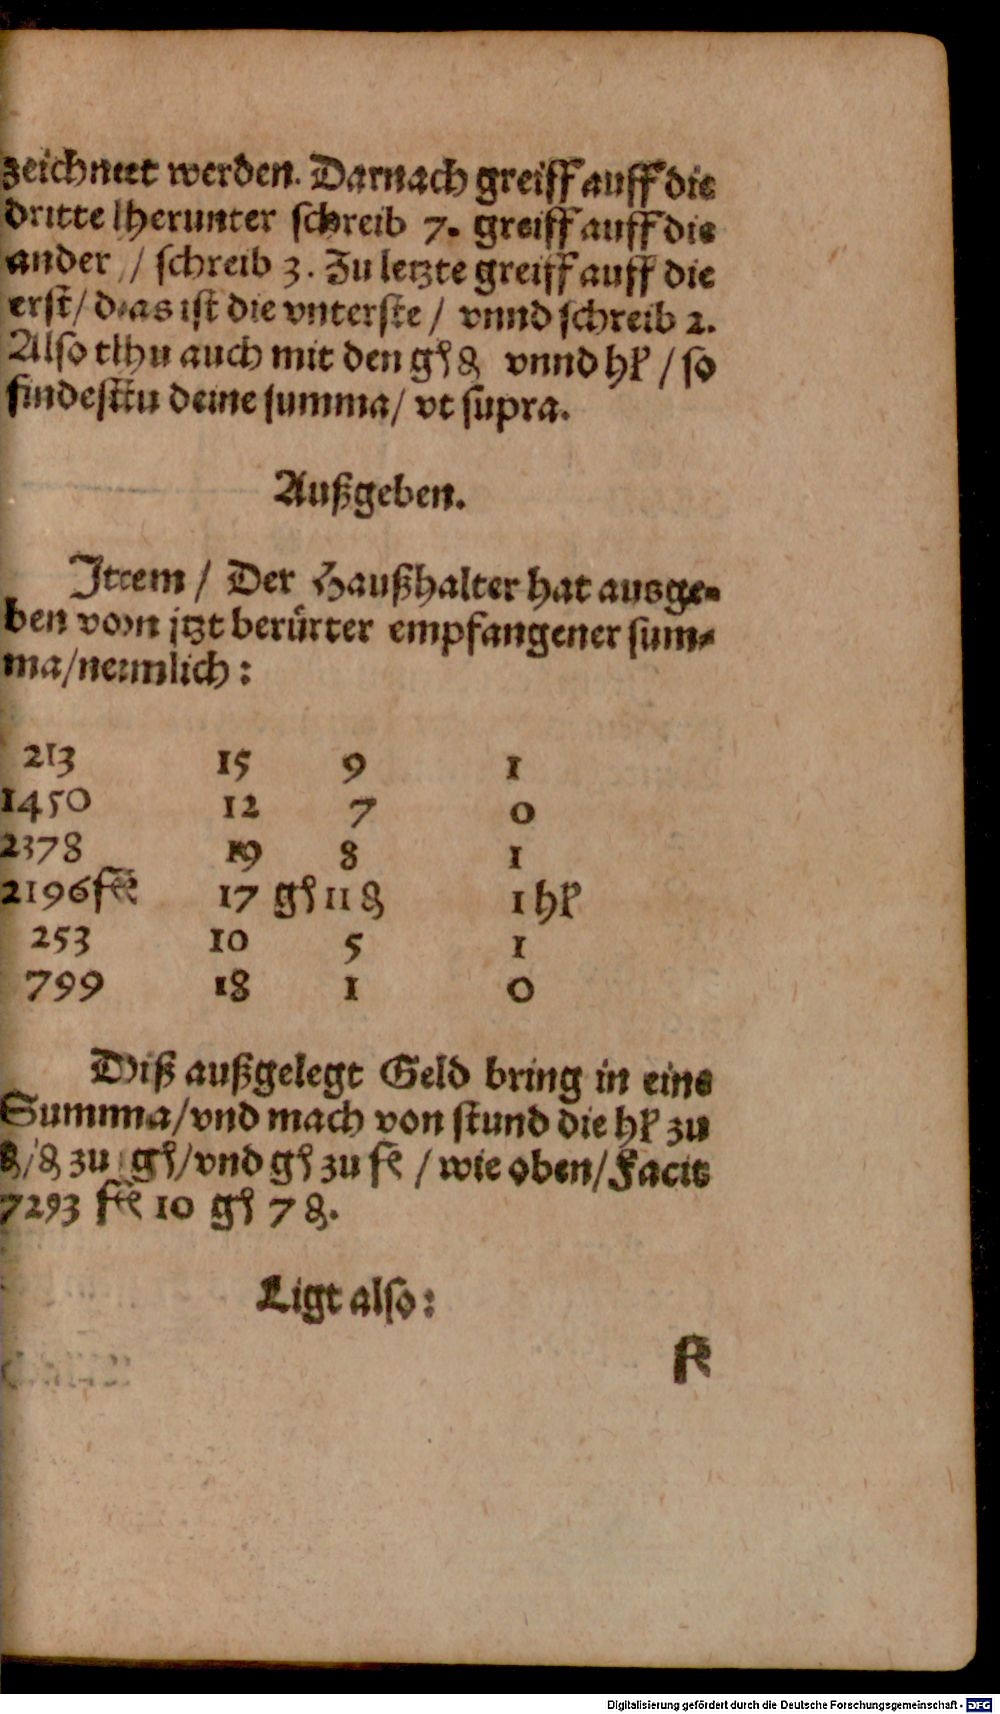 zeichnet werden. Darnach greiff auff die
dritte herunter schreib 7. greiff auff die
ander / schreib 3. Zu letzte greiff auff die
erst / das ist die vnterste / vnnd schreib 2.
Also thu auch mit den gſ ₰ vnnd hl / so
findestu deine summa / vt supra.
Außgeben.
Item / Der Haußhalter hat ausge-
ben von jtzt berürter empfangener sum-
ma / nemlich:
213 15 9 1
1450 12 7 0
2378 19 8 1
2196 fl 17 gſ 11 ₰ 1 hl
253 10 5 1
799 18 1 0
Diß außgelegt Geld bring in eine
Summa / vnd mach von stund die hl zu
₰ / ₰ zu gſ / vnd gſ zu fl / wie oben / Facit
7293 fl 10 gſ 7 ₰.
Ligt also:
fl
Digitalisierung gefördert durch die Deutsche Forschungsgemeinschaft - DFG